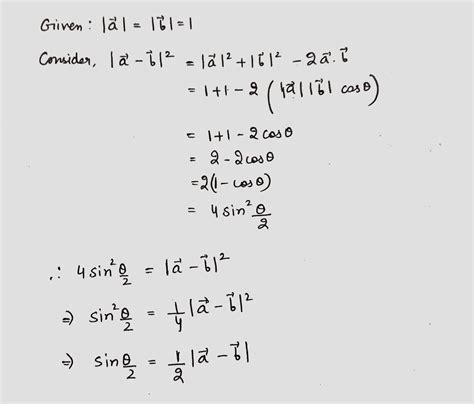 Given : |a⃗| = |b⃗| = 1
Consider, |a⃗ - b⃗|² = |a⃗|² + |b⃗|² - 2a⃗.b⃗
= 1+1 - 2 ( |a⃗| |b⃗| cosθ)
= 1+1 - 2cosθ
= 2 - 2cosθ
= 2(1 - cosθ)
= 4 sin² θ/2
∴ 4 sin² θ/2 = |a⃗ - b⃗|²
⇒ sin² θ/2 = 1/4 |a⃗ - b⃗|²
⇒ sin θ/2 = 1/2 |a⃗ - b⃗|